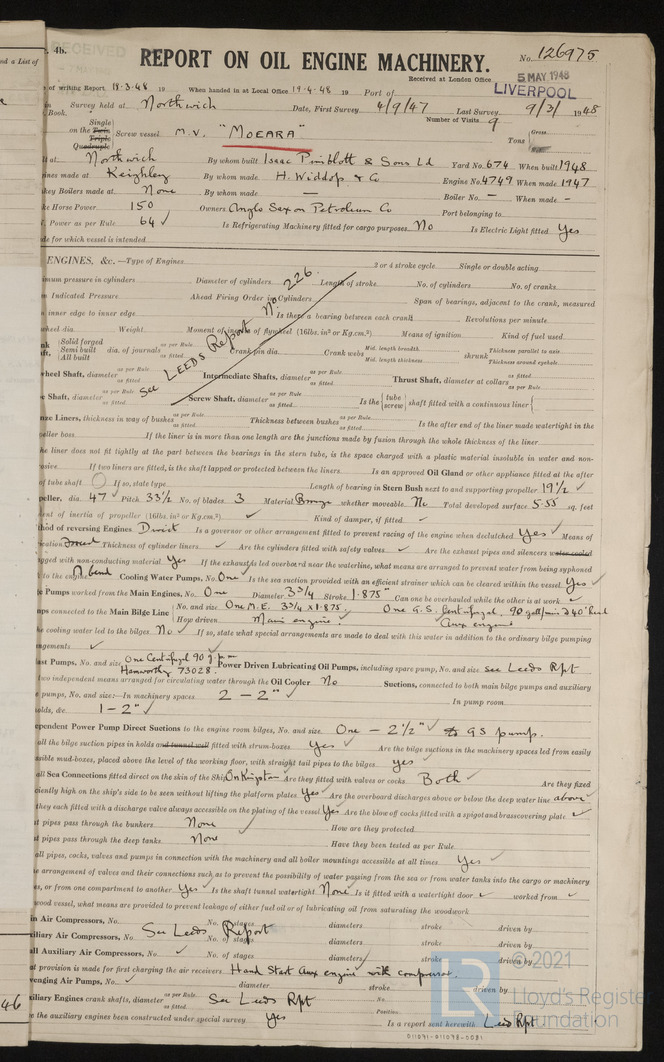 4b.
RECEIVED
REPORT ON OIL ENGINE MACHINERY.
No. 126975
Received at London Office
5 MAY 1948
LIVERPOOL
of writing Report 19.3.48 19 When handed in at Local Office 19.4.48 19 Port of
Survey held at Northwich Date, First Survey 4/9/47 Last Survey 9/3/1948
Book. Number of Visits 9
on the Single Twin Triple Quadruple Screw vessel M.V. "MOEARA" Tons Gross
at Northwich By whom built Isaac Pimblott & Sons Ld Yard No. 674 When built 1948
ines made at Keighley By whom made H. Widdop & Co Engine No. 4749 When made 1947
key Boilers made at None By whom made — Boiler No. — When made —
ke Horse Power 150 Owners Anglo Saxon Petroleum Co Port belonging to
. Power as per Rule 64 ✓ Is Refrigerating Machinery fitted for cargo purposes No Is Electric Light fitted Yes
de for which vessel is intended
ENGINES, &c.—Type of Engines 2 or 4 stroke cycle Single or double acting
imum pressure in cylinders Diameter of cylinders Length of stroke No. of cylinders No. of cranks
n Indicated Pressure Ahead Firing Order in Cylinders Span of bearings, adjacent to the crank, measured
n inner edge to inner edge Is there a bearing between each crank Revolutions per minute
wheel dia. Weight Moment of inertia of flywheel (16lbs. in² or Kg.cm.²) Means of ignition Kind of fuel used
Solid forged Semi built All built dia. of journals as per Rule as fitted Crank pin dia. Crank webs Mid. length breadth Mid. length thickness shrunk Thickness parallel to axis Thickness around eyehole
See LEEDS Report No. 226
wheel Shaft, diameter as per Rule as fitted Intermediate Shafts, diameter as per Rule as fitted Thrust Shaft, diameter at collars as per Rule as fitted
e Shaft, diameter as per Rule as fitted Screw Shaft, diameter as per Rule as fitted Is the tube screw shaft fitted with a continuous liner
nze Liners, thickness in way of bushes as per Rule as fitted Thickness between bushes as per Rule as fitted Is the after end of the liner made watertight in the
peller boss If the liner is in more than one length are the junctions made by fusion through the whole thickness of the liner
he liner does not fit tightly at the part between the bearings in the stern tube, is the space charged with a plastic material insoluble in water and non-
osive If two liners are fitted, is the shaft lapped or protected between the liners Is an approved Oil Gland or other appliance fitted at the after
of tube shaft If so, state type Length of bearing in Stern Bush next to and supporting propeller 19½ ✓
peller, dia. 47 ✓ Pitch 33½ No. of blades 3 Material Bronze whether moveable No Total developed surface 5.55 sq. feet
ent of inertia of propeller (16lbs. in² or Kg.cm.²) ✓ Kind of damper, if fitted ✓
thod of reversing Engines Direct Is a governor or other arrangement fitted to prevent racing of the engine when declutched Yes ✓ Means of
ication Forced Thickness of cylinder liners ✓ Are the cylinders fitted with safety valves ✓ Are the exhaust pipes and silencers water cooled
gged with non-conducting material Yes If the exhaust is led overboard near the waterline, what means are arranged to prevent water from being syphoned
to the engine A bend Cooling Water Pumps, No. One Is the sea suction provided with an efficient strainer which can be cleared within the vessel Yes ✓
e Pumps worked from the Main Engines, No. One Diameter 3¾ Stroke 1.875" Can one be overhauled while the other is at work ✓
mps connected to the Main Bilge Line No. and size One M.E. 3¾ x 1.875. One G.S. Centrifugal 90 gall/min @ 40' head
How driven Main engine Aux engine
he cooling water led to the bilges No ✓ If so, state what special arrangements are made to deal with this water in addition to the ordinary bilge pumping
ngements ✓
ast Pumps, No. and size One Centrifugal 90 g.p.m Hamworthy 73028. Power Driven Lubricating Oil Pumps, including spare pump, No. and size See Leeds Rpt
two independent means arranged for circulating water through the Oil Cooler No Suctions, connected to both main bilge pumps and auxiliary
pumps, No. and size:—In machinery spaces 2 – 2" ✓ In pump room
olds, &c. 1 – 2" ✓
ependent Power Pump Direct Suctions to the engine room bilges, No. and size One – 2½" ✓ GS pump.
all the bilge suction pipes in holds and tunnel well fitted with strum-boxes Yes ✓ Are the bilge suctions in the machinery spaces led from easily
ssible mud-boxes, placed above the level of the working floor, with straight tail pipes to the bilges yes ✓
all Sea Connections fitted direct on the skin of the Ship Are they fitted with valves or cocks Both ✓ Are they fixed
iciently high on the ship's side to be seen without lifting the platform plates Yes ✓ Are the overboard discharges above or below the deep water line above ✓
they each fitted with a discharge valve always accessible on the plating of the vessel Yes Are the blow off cocks fitted with a spigot and brass covering plate ✓
t pipes pass through the bunkers None How are they protected
t pipes pass through the deep tanks None Have they been tested as per Rule
all pipes, cocks, valves and pumps in connection with the machinery and all boiler mountings accessible at all times Yes ✓
he arrangement of valves and their connections such as to prevent the possibility of water passing from the sea or from water tanks into the cargo or machinery
es, or from one compartment to another Yes ✓ Is the shaft tunnel watertight None Is it fitted with a watertight door ✓ worked from ✓
wood vessel, what means are provided to prevent leakage of either fuel oil or of lubricating oil from saturating the woodwork
in Air Compressors, No. No. of stages diameters stroke driven by
See Leeds Report
iliary Air Compressors, No. No. of stages diameters stroke driven by
all Auxiliary Air Compressors, No. ✓ No. of stages diameters stroke driven by
at provision is made for first charging the air receivers Hand Start Aux engine with compressor.
venging Air Pumps, No. ✓ diameter stroke driven by
xiliary Engines crank shafts, diameter as per Rule as fitted See Leeds Rpt No. Position
e the auxiliary engines been constructed under special survey Yes Is a report sent herewith Leeds Rpt
011091-011098-0081
LR
© 2021
Lloyd's Register
Foundation
nd a List of
46